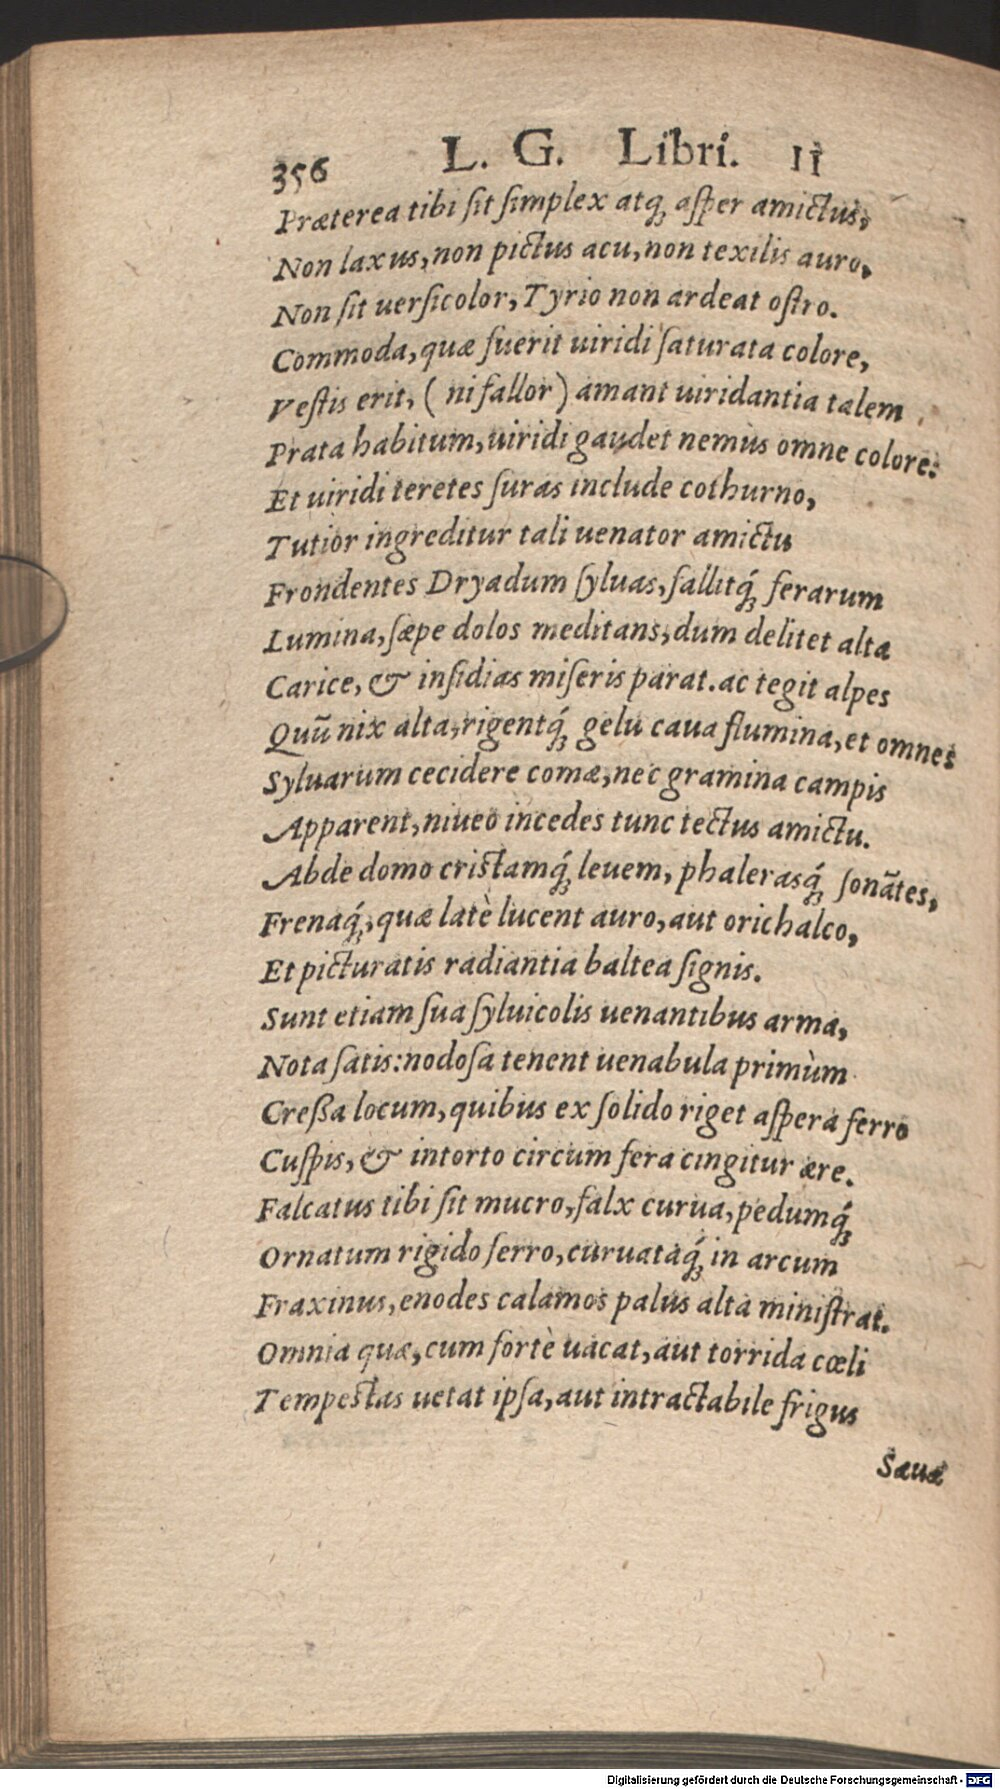 356 L. G. Libri. II
Præterea tibi sit simplex atq; asper amictus,
Non laxus, non pictus acu, non texilis auro,
Non sit uersicolor, Tyrio non ardeat ostro.
Commoda, quæ fuerit uiridi saturata colore,
Vestis erit, ( ni fallor ) amant uiridantia talem
Prata habitum, uiridi gaudet nemus omne colore:
Et uiridi teretes suras include cothurno,
Tutior ingreditur tali uenator amictu
Frondentes Dryadum syluas, fallitq́; ferarum
Lumina, sæpe dolos meditans, dum delitet alta
Carice, & insidias miseris parat. ac tegit alpes
Quũ nix alta, rigentq́; gelu caua flumina, et omnes
Syluarum cecidere comæ, nec gramina campis
Apparent, niueo incedes tunc tectus amictu.
Abde domo cristamq́; leuem, phalerasq́; sonãtes,
Frenaq́;, quæ latè lucent auro, aut orichalco,
Et picturatis radiantia baltea signis.
Sunt etiam sua syluicolis uenantibus arma,
Nota satis: nodosa tenent uenabula primùm
Creßa locum, quibus ex solido riget aspera ferro
Cuspis, & intorto circum fera cingitur ære.
Falcatus tibi sit mucro, falx curua, pedumq́;
Ornatum rigido ferro, curuataq́; in arcum
Fraxinus, enodes calamos palus alta ministrat.
Omnia quæ, cum fortè uacat, aut torrida cœli
Tempestas uetat ipsa, aut intractabile frigus
Sæuæ
Digitalisierung gefördert durch die Deutsche Forschungsgemeinschaft - DFG